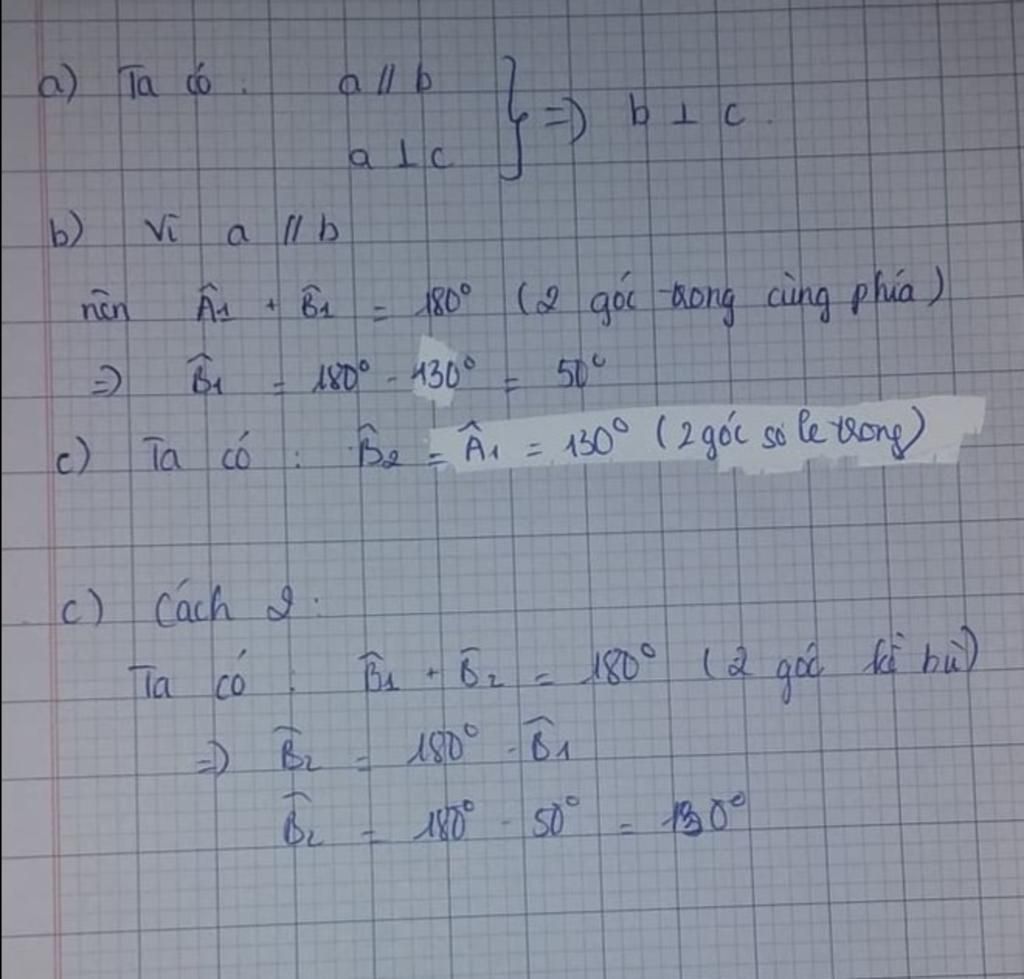 a) Ta có : a // b
a ⊥ c } => b ⊥ c.
b) Vì a // b
nên Â1 + B̂1 = 180° (2 góc trong cùng phía)
=> B̂1 = 180° - 130° = 50°
c) Ta có : B̂2 = Â1 = 130° (2 góc so le trong)
c) Cách 2 :
Ta có : B̂1 + B̂2 = 180° (2 góc kề bù)
=> B̂2 = 180° - B̂1
B̂2 = 180° - 50° = 130°